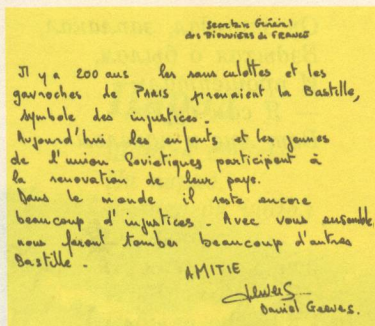 Secretaire Général
des Pionniers de FRANCE
Il y a 200 ans les sans culottes et les
gavroches de PARIS prenaient la Bastille,
symbole des injustices.
Aujourd'hui les enfants et les jeunes
de l'union Soviétiques participent à
la renovation de leur pays.
Dans le monde il reste encore
beaucoup d'injustices. Avec vous ensemble
nous feront tomber beaucoup d'autres
Bastille.
AMITIE
Daniel